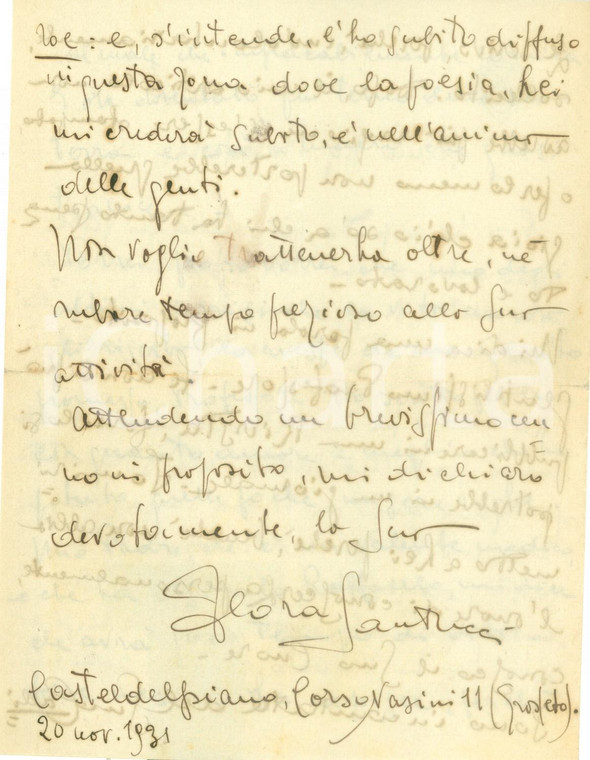 roe: e, s'intende, l'ho subito diffuso
in questa zona dove la poesia, Lei
mi crederà subito, è nell'animo
delle genti.
Non voglio trattenerLa oltre, nè
rubare tempo prezioso alla Sua
attività.
Attendendo un brevissimo cen
no in proposito, mi dichiaro
devotamente, la Sua
Flora Santucci
Casteldelpiano, Corso Nasini 11 (Grosseto).
20 nov. 1931